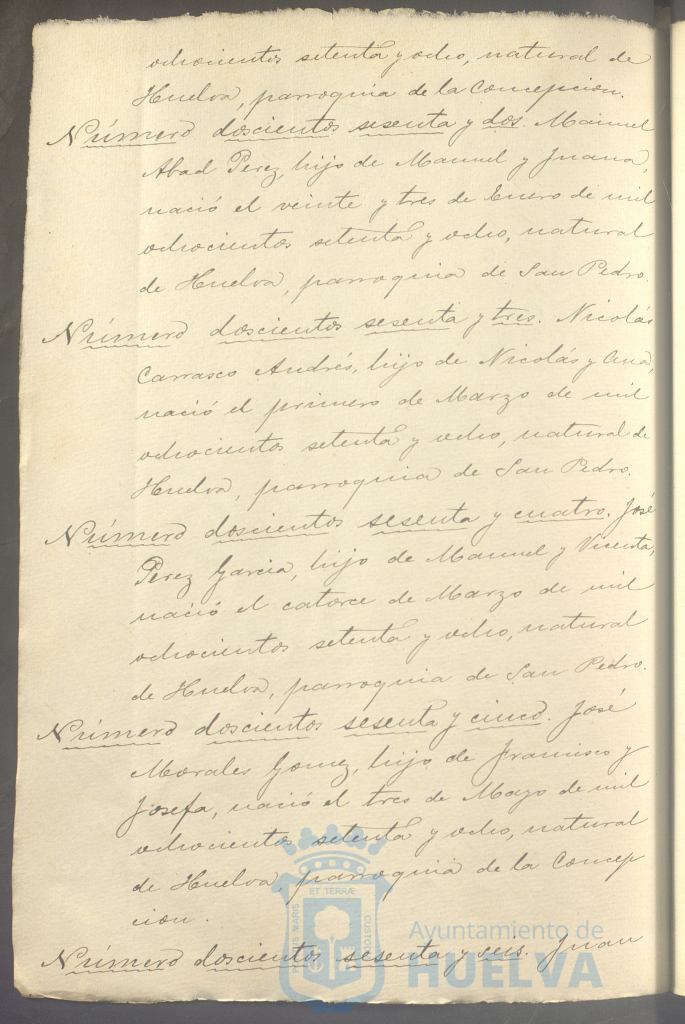 ochocientos setenta y ocho, natural de
Huelva, parroquia de la Concepcion.
Número doscientos sesenta y dos. Manuel
Abad Perez, hijo de Manuel y Juana,
nació el veinte y tres de Enero de mil
ochocientos setenta y ocho, natural
de Huelva, parroquia de San Pedro.
Número doscientos sesenta y tres. Nicolás
Carrasco Andrés, hijo de Nicolás y Ana,
nació el primero de Marzo de mil
ochocientos setenta y ocho, natural de
Huelva, parroquia de San Pedro.
Número doscientos sesenta y cuatro. José
Perez Garcia, hijo de Manuel y Vicenta,
nació el catorce de Marzo de mil
ochocientos setenta y ocho, natural
de Huelva, parroquia de San Pedro.
Número doscientos sesenta y cinco. José
Morales Gomez, hijo de Francisco y
Josefa, nació el tres de Mayo de mil
ochocientos setenta y ocho, natural
de Huelva, parroquia de la Concep
cion.
Número doscientos sesenta y seis. Juan
ET TERRÆ
MARIS
CUSTOD
Ayuntamiento de
HUELVA